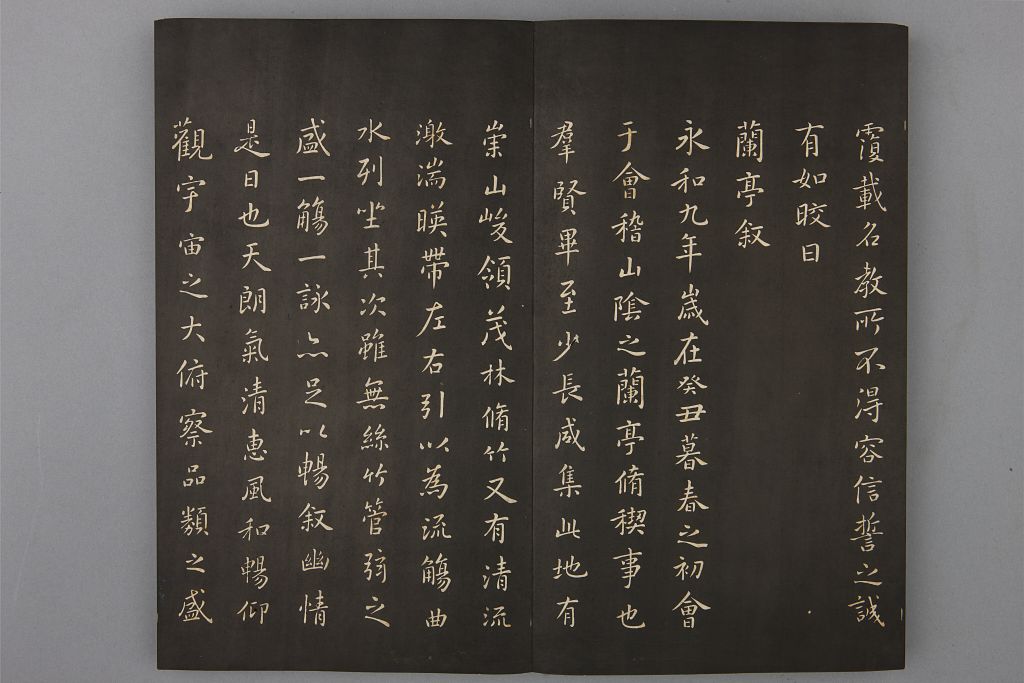 覆載名教所不得容信誓之誠
有如晈日
蘭亭叙
永和九年歲在癸丑暮春之初會
于會稽山陰之蘭亭脩稧事也
羣賢畢至少長咸集此地有
崇山峻領茂林脩竹又有清流
激湍暎帶左右引以為流觴曲
水列坐其次雖無絲竹管弦之
盛一觴一詠亦足以暢叙幽情
是日也天朗氣清惠風和暢仰
觀宇宙之大俯察品類之盛